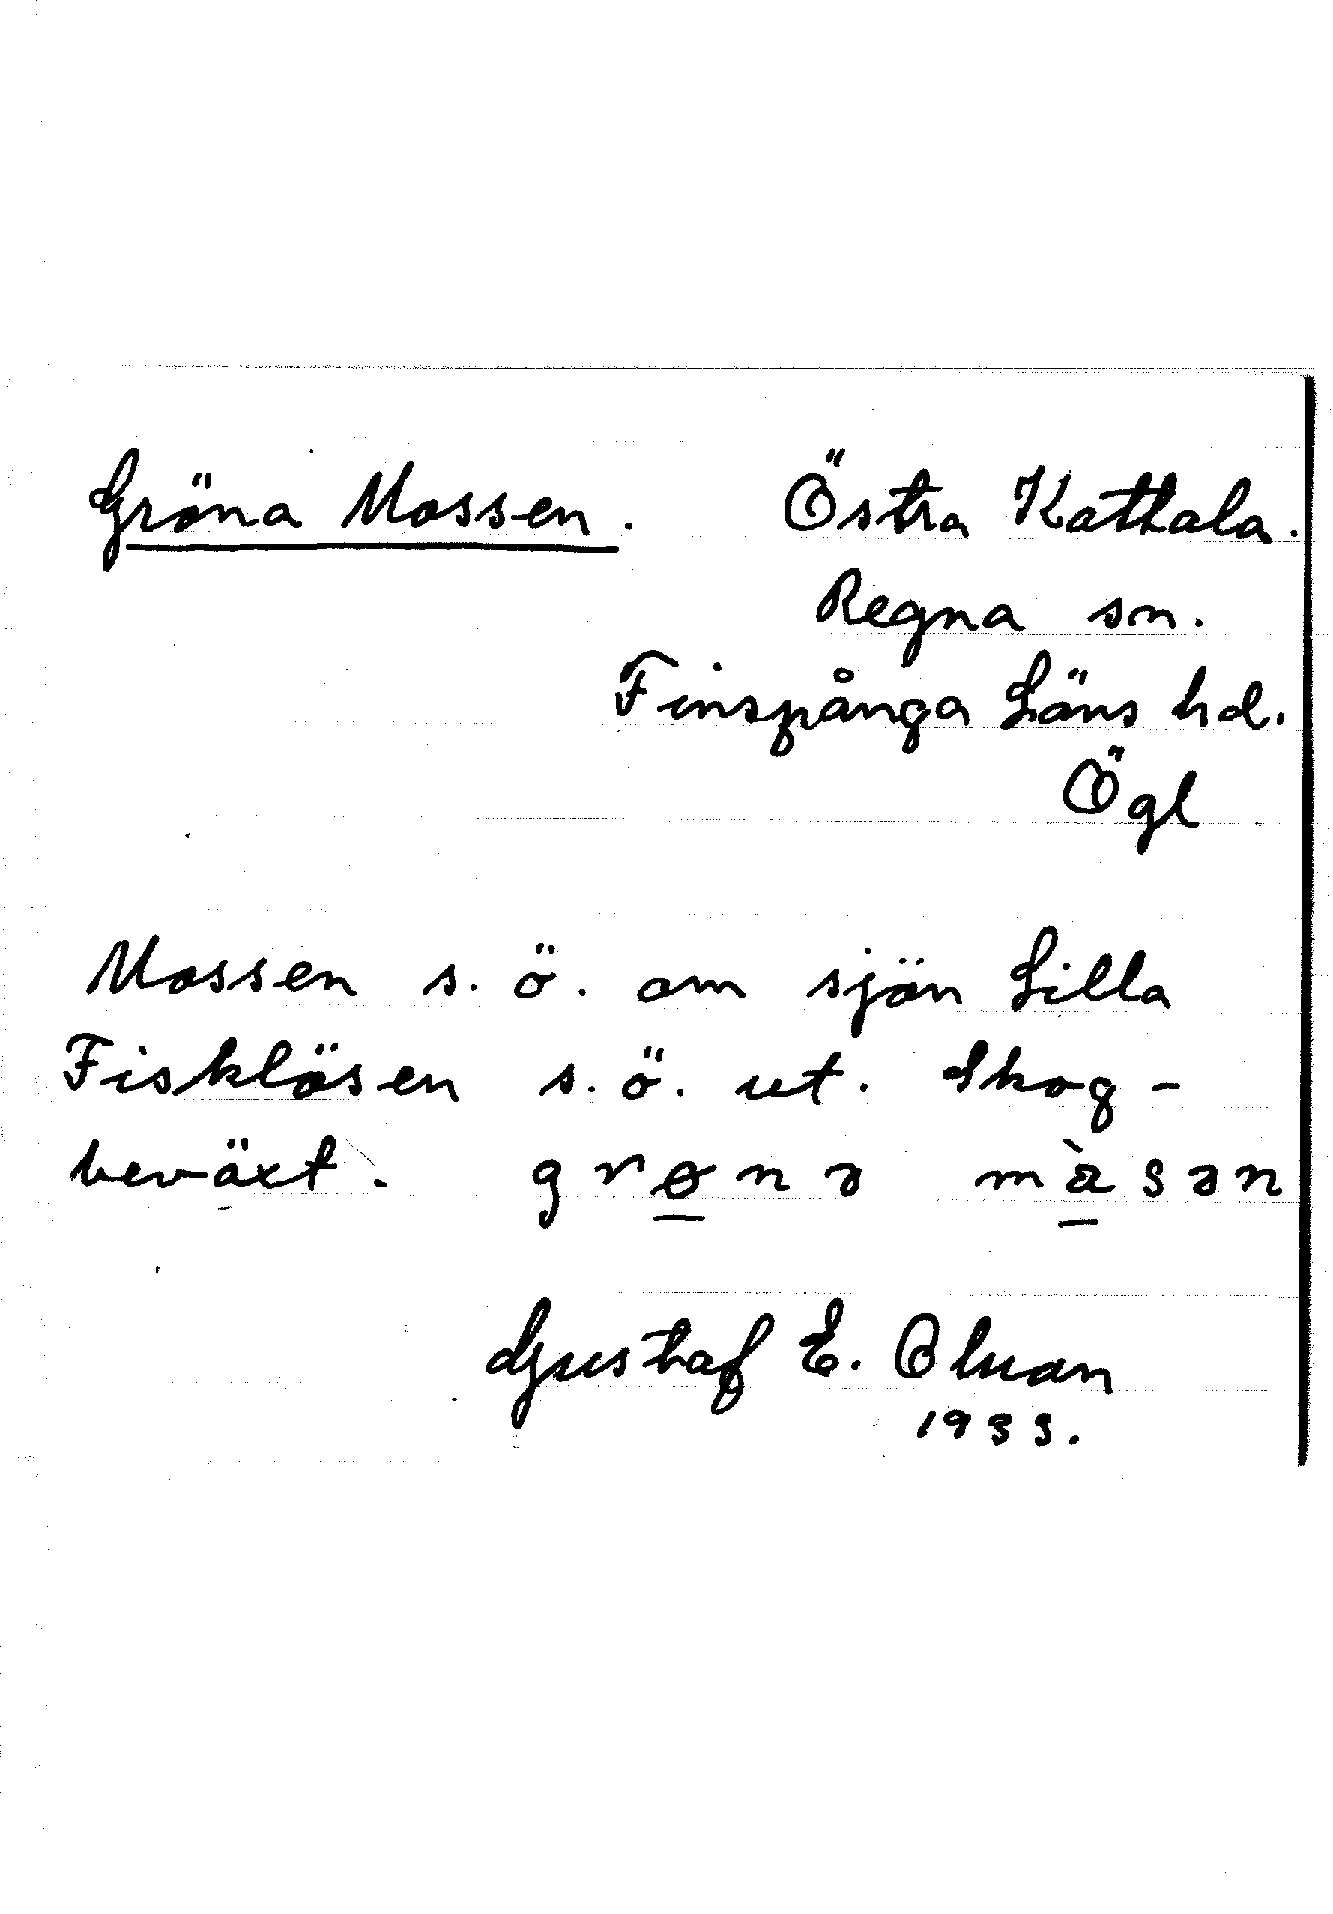 Gröna Mossen. Östra Kathala.
Regna sn.
Finspånga Läns hd.
Ögl
Mossen s. ö. om sjön Lilla
Fisklösen s. ö. ut. Skog-
beväxt. grønɘ màsɘn
Gustaf E. Olman
1933.